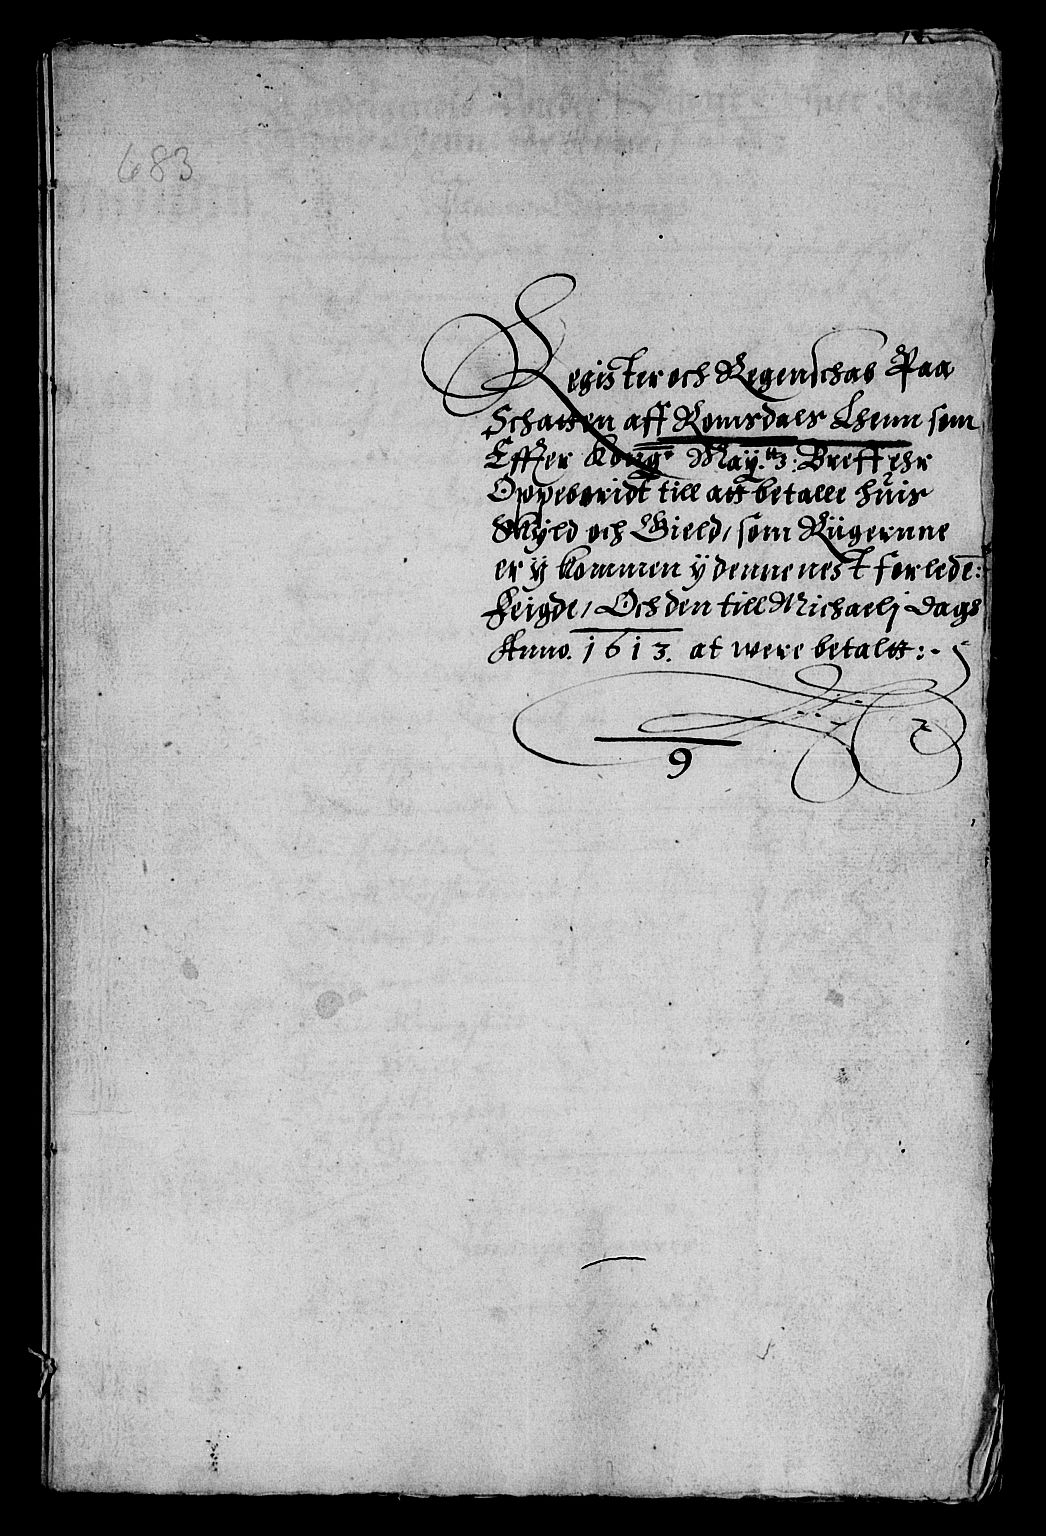 683
Register och Regenschab Paa
Schatten aff Romsdals Lhenn som
Effter Kong: May.tt3: Breff ehr
Oppeboridt till att betalle huis
Skyld och Gield, som Rügernne
er ÿ kommen ÿ denne nest forleden:
Feigde, Och den till Michaelj Dags
Anno. 1613. at were betaltt:.
9